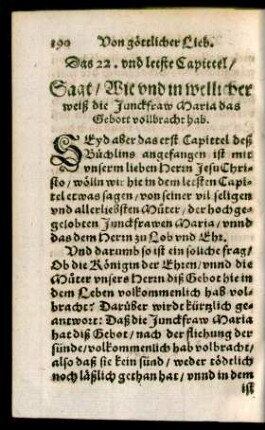 190 Von göttlicher Lieb.
Das 22. vnd letste Capittel/
Sagt/ Wie vnd in wellicher
weiß die Junckfraw Maria das
Gebott vollbracht hab.
SEyd aber das erst Capittel deß
Büchlins angefangen ist mit
vnserm lieben Herrn Jesu Chri-
sto/ wölln wir hie in dem letsten Capi-
tel etwas sagen/ von seiner vil seligen
vnd allerliebsten Můter/ der hochge-
gelobten Junckfrawen Maria/ vnnd
das dem Herrn zu Lob vnd Ehr.
Vnd darumb so ist ein soliche frag/
Ob die Königin der Ehren/ vnnd die
Můter vnsers Herrn diß Gebot hie in
dem Leben volkommenlich hab vol-
bracht? Darüber wirdt kürtzlich ge-
antwort: Daß die Junckfraw Maria
hat diß Gebot/ nach der fliehung der
sünde/ volkommenlich hab volbracht/
also daß sie kein sünd/ weder tödtlich
noch läßlich gethan hat/ vnnd in dem
ist